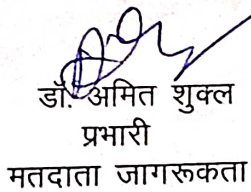 डॉ. अमित शुक्ल
प्रभारी
मतदाता जागरूकता